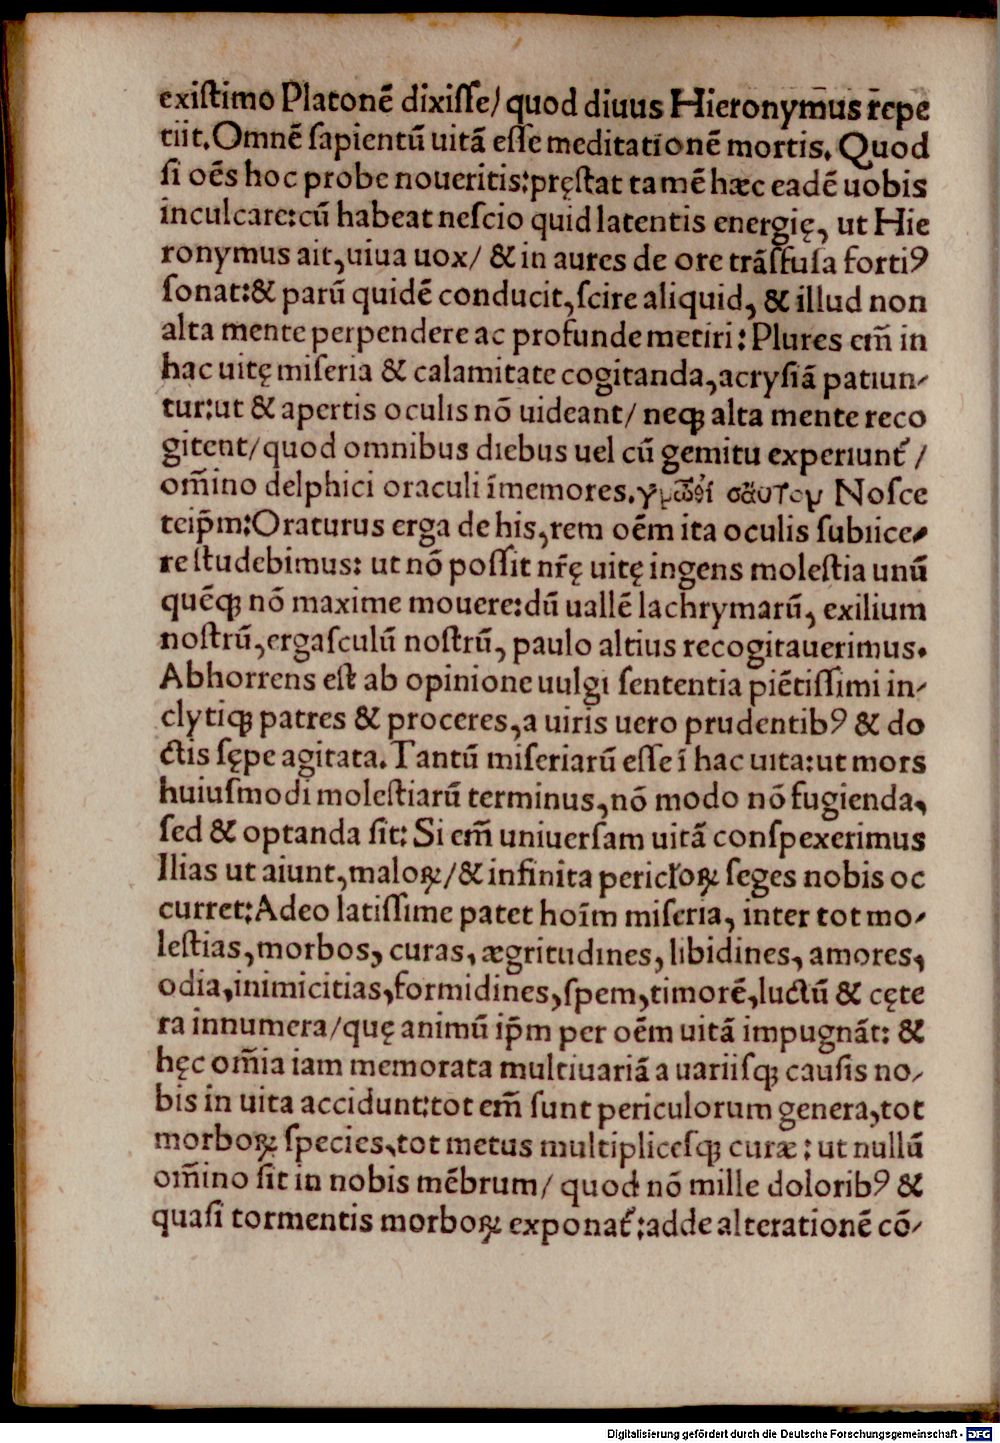 existimo Platonē dixisse/ quod diuus Hieronymus repe
tiit. Omnē sapientū uitā esse meditationē mortis. Quod
si oēs hoc probe noueritis: pręstat tamē hæc eadē uobis
inculcare: cū habeat nescio quid latentis energię, ut Hie
ronymus ait, uiua uox/ & in aures de ore trāsfusa fortiꝰ
sonat: & parū quidē conducit, scire aliquid, & illud non
alta mente perpendere ac profunde metiri: Plures em̄ in
hac uitę miseria & calamitate cogitanda, acrysiā patiun-
tur: ut & apertis oculis nō uideant/ neqꝫ alta mente reco
gitent/ quod omnibus diebus uel cū gemitu experiunt᷑ /
om̄ino delphici oraculi īmemores. γνῶθι σαυτον Nosce
teip̄m: Oraturus erga de his, rem oēm ita oculis subiice-
re studebimus: ut nō possit nr̄ę uitę ingens molestia unū
quēqꝫ nō maxime mouere: dū uallē lachrymarū, exilium
nostrū, ergasculū nostrū, paulo altius recogitauerimus.
Abhorrens est ab opinione uulgi sententia piētissimi in-
clytiqꝫ patres & proceres, a uiris uero prudentibꝰ & do
ctis sępe agitata. Tantū miseriarū esse ī hac uita: ut mors
huiusmodi molestiarū terminus, nō modo nō fugienda,
sed & optanda sit: Si em̄ uniuersam uitā conspexerimus
Ilias ut aiunt, maloꝝ/ & infinita pericl̄oꝝ seges nobis oc
curret: Adeo latissime patet hoīm miseria, inter tot mo-
lestias, morbos, curas, ægritudines, libidines, amores,
odia, inimicitias, formidines, spem, timorē, luctū & cęte
ra innumera/ quę animū ip̄m per oēm uitā impugnāt: &
hęc om̄ia iam memorata multiuariā a uariisqꝫ causis no-
bis in uita accidunt: tot em̄ sunt periculorum genera, tot
morboꝝ species, tot metus multiplicesqꝫ curæ: ut nullū
om̄ino sit in nobis mēbrum/ quod nō mille doloribꝰ &
quasi tormentis morboꝝ exponat᷑: adde alterationē cō-
Digitalisierung gefördert durch die Deutsche Forschungsgemeinschaft - DFG